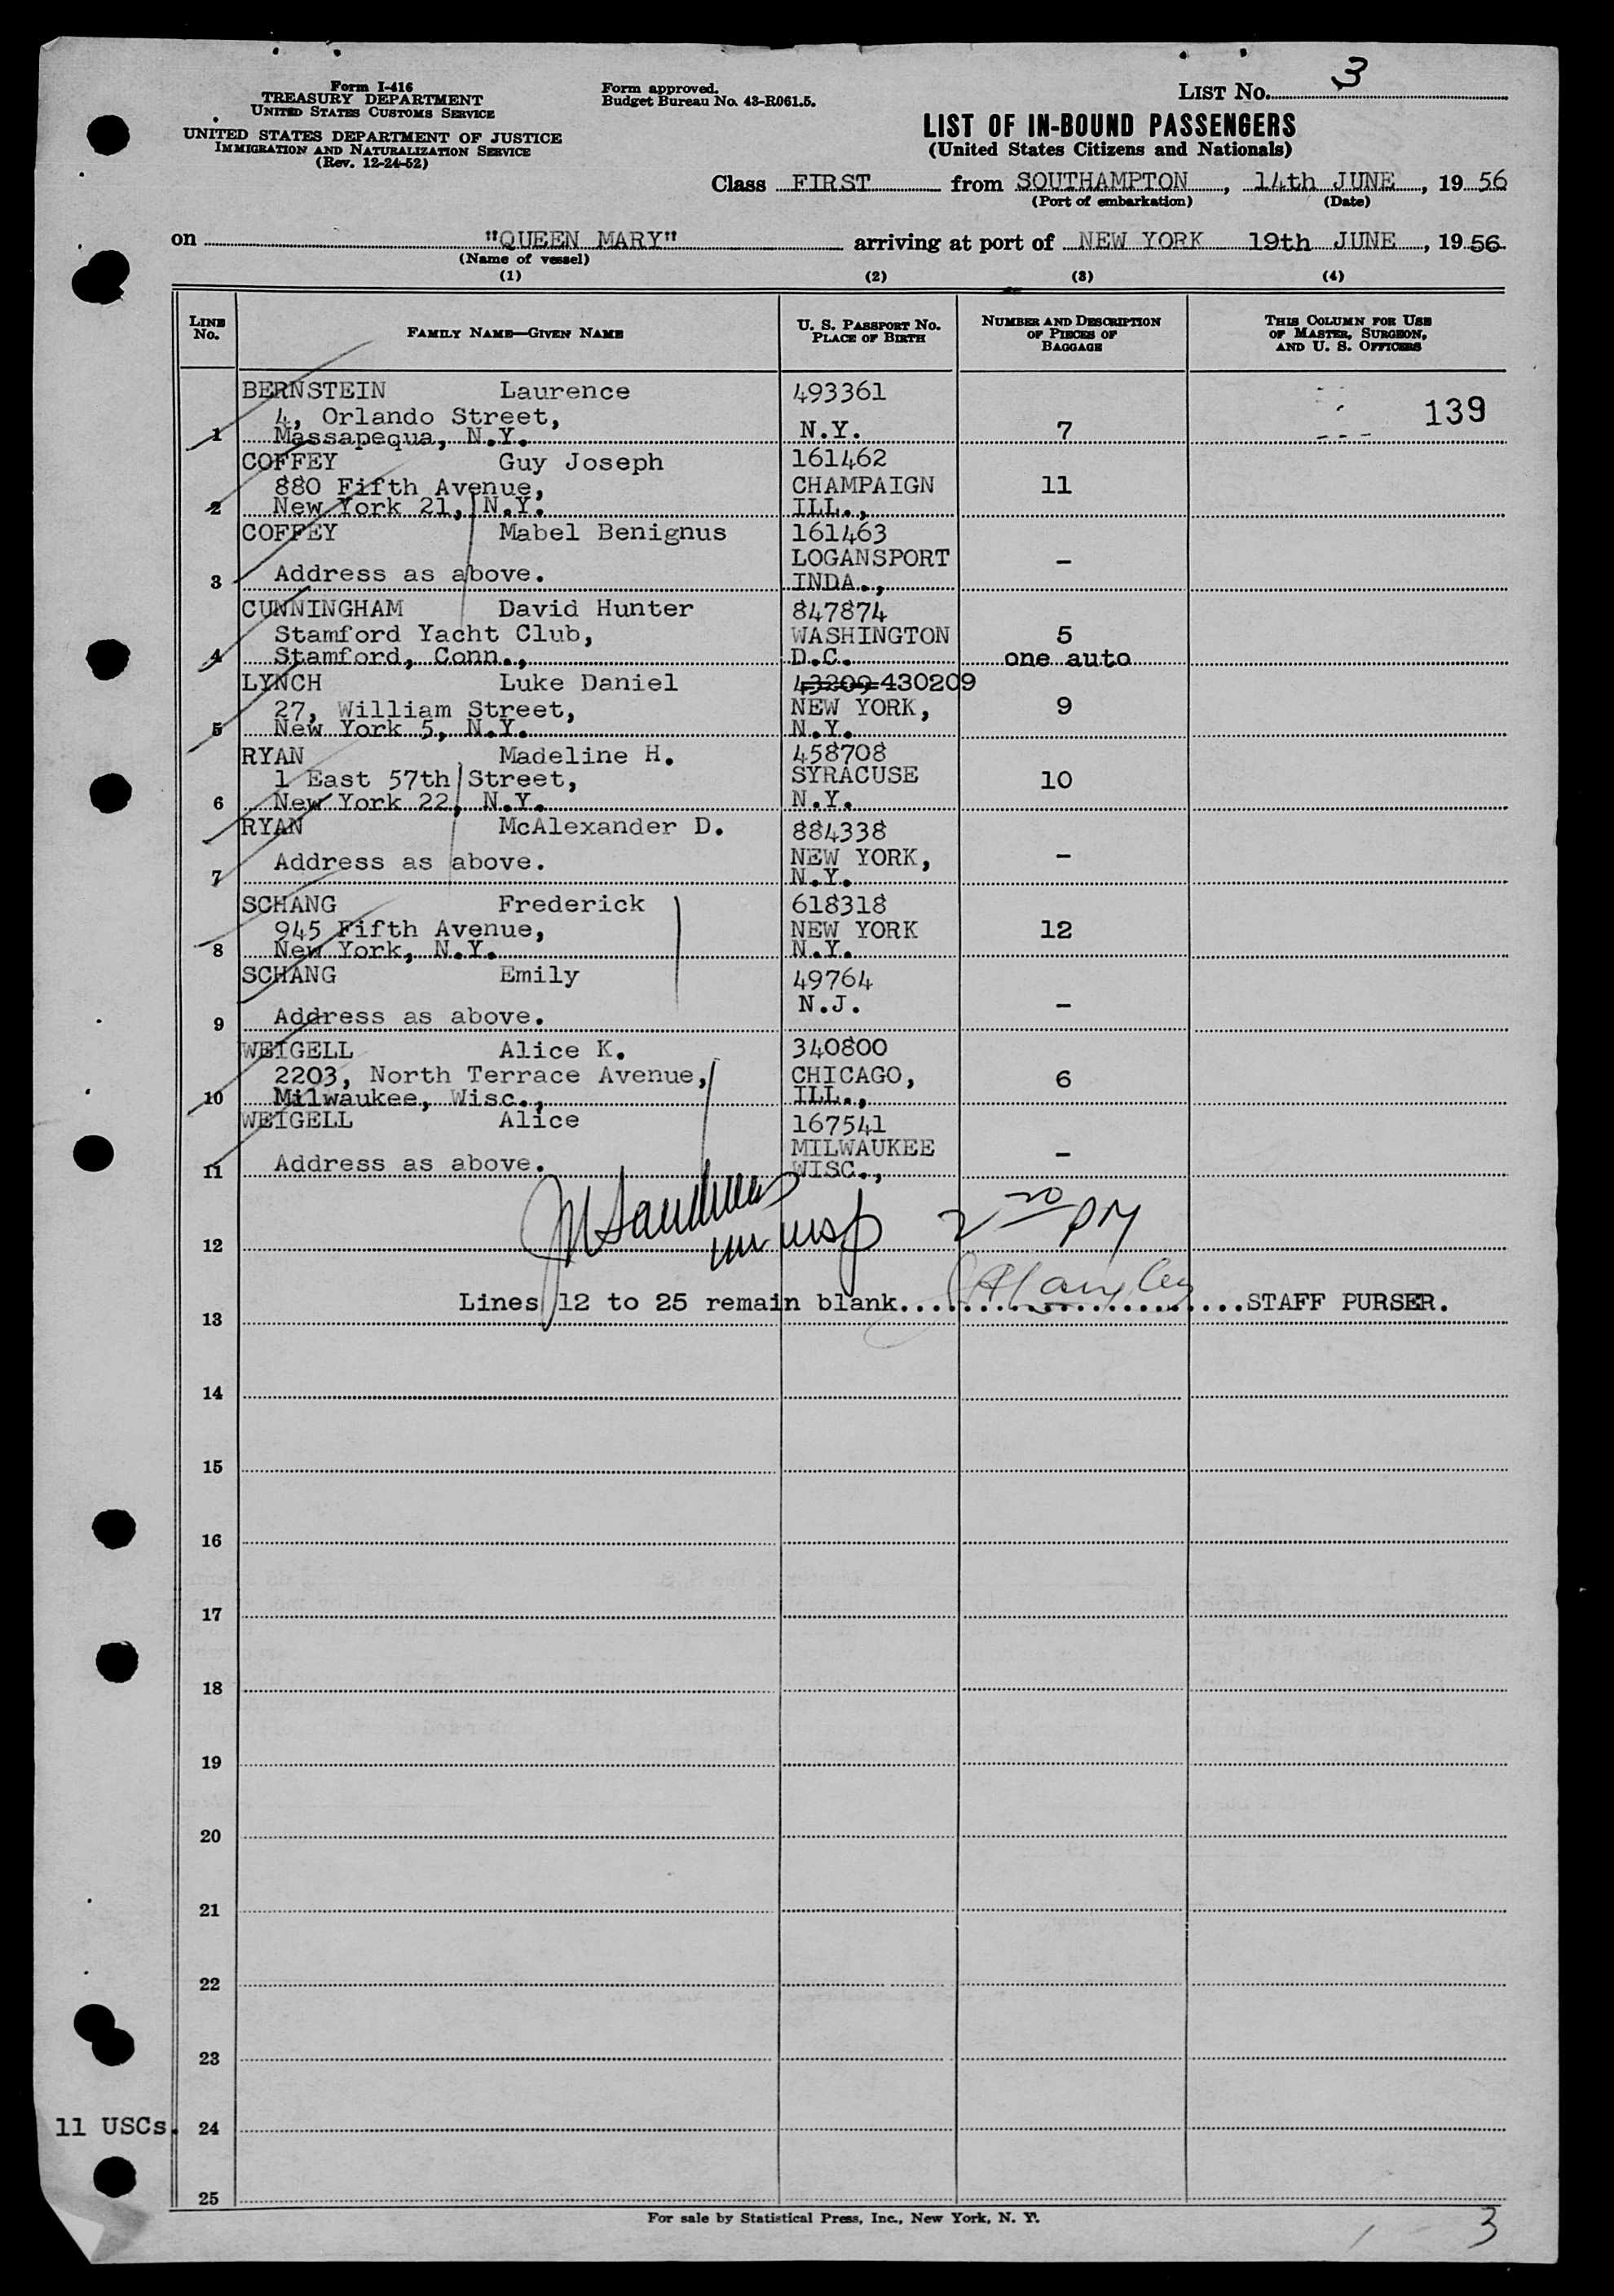 Form I-416
TREASURY DEPARTMENT
UNITED STATES CUSTOMS SERVICE
UNITED STATES DEPARTMENT OF JUSTICE
IMMIGRATION AND NATURALIZATION SERVICE
(Rev. 12-24-52)
Form approved.
Budget Bureau No. 43-R061.5.
LIST No. 3
LIST OF IN-BOUND PASSENGERS
(United States Citizens and Nationals)
Class FIRST from SOUTHAMPTON, 14th JUNE, 19 56
(Port of embarkation) (Date)
on "QUEEN MARY" arriving at port of NEW YORK 19th JUNE, 19 56
(Name of vessel)
(1) (2) (3) (4)
LINE No. FAMILY NAME—GIVEN NAME U. S. PASSPORT No. PLACE OF BIRTH NUMBER AND DESCRIPTION OF PIECES OF BAGGAGE THIS COLUMN FOR USE OF MASTER, SURGEON, AND U. S. OFFICERS
BERNSTEIN Laurence 493361
4, Orlando Street, 139
1 Massapequa, N.Y. N.Y. 7
COFFEY Guy Joseph 161462
880 Fifth Avenue, CHAMPAIGN 11
2 New York 21, N.Y. ILL.,
COFFEY Mabel Benignus 161463
LOGANSPORT –
3 Address as above. INDA.,
CUNNINGHAM David Hunter 847874
Stamford Yacht Club, WASHINGTON 5
4 Stamford, Conn., D.C. one auto
LYNCH Luke Daniel 43209 430209
27, William Street, NEW YORK, 9
5 New York 5, N.Y. N.Y.
RYAN Madeline H. 458708
1 East 57th Street, SYRACUSE 10
6 New York 22, N.Y. N.Y.
RYAN McAlexander D. 884338
Address as above. NEW YORK, –
7 N.Y.
SCHANG Frederick 618318
945 Fifth Avenue, NEW YORK 12
8 New York, N.Y. N.Y.
SCHANG Emily 49764
N.J. –
9 Address as above.
WEIGELL Alice K. 340800
2203, North Terrace Avenue, CHICAGO, 6
10 Milwaukee, Wisc., ILL.,
WEIGELL Alice 167541
MILWAUKEE –
11 Address as above. WISC.,
2 20 PM
12 insp
Lines 12 to 25 remain blank. STAFF PURSER.
13
14
15
16
17
18
19
20
21
22
23
11 USCs. 24
25
For sale by Statistical Press, Inc., New York, N. Y.
3